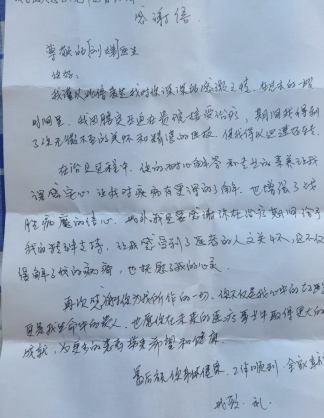 感谢信
尊敬的刘 医生
您好,
我谨以此信表达我对您深深的感激之情。在过去的一段
时间里,我因 在贵院接受治疗,期间我得到
了您无微不至的关怀和精湛的医技,使我得以迅速好转。
在治疗过程中,您的耐心解答和专业的素养让我
深感安心,让我对疾病有更深的了解,也增强了战
胜病魔的信心。此外我更要感谢您在治疗期间给予
我的精神支持,让我感受到了医者的人文关怀,这不仅
缓解了我的病痛,也抚慰了我的心灵。
再次感谢您为我所作的一切。您不仅是我心中的好医
更是我生命中的贵人,也愿您在未来的医疗事业中取得更大的
成就,为更多的患者带来希望和健康。
最后祝您身体健康,工作顺利,全家幸